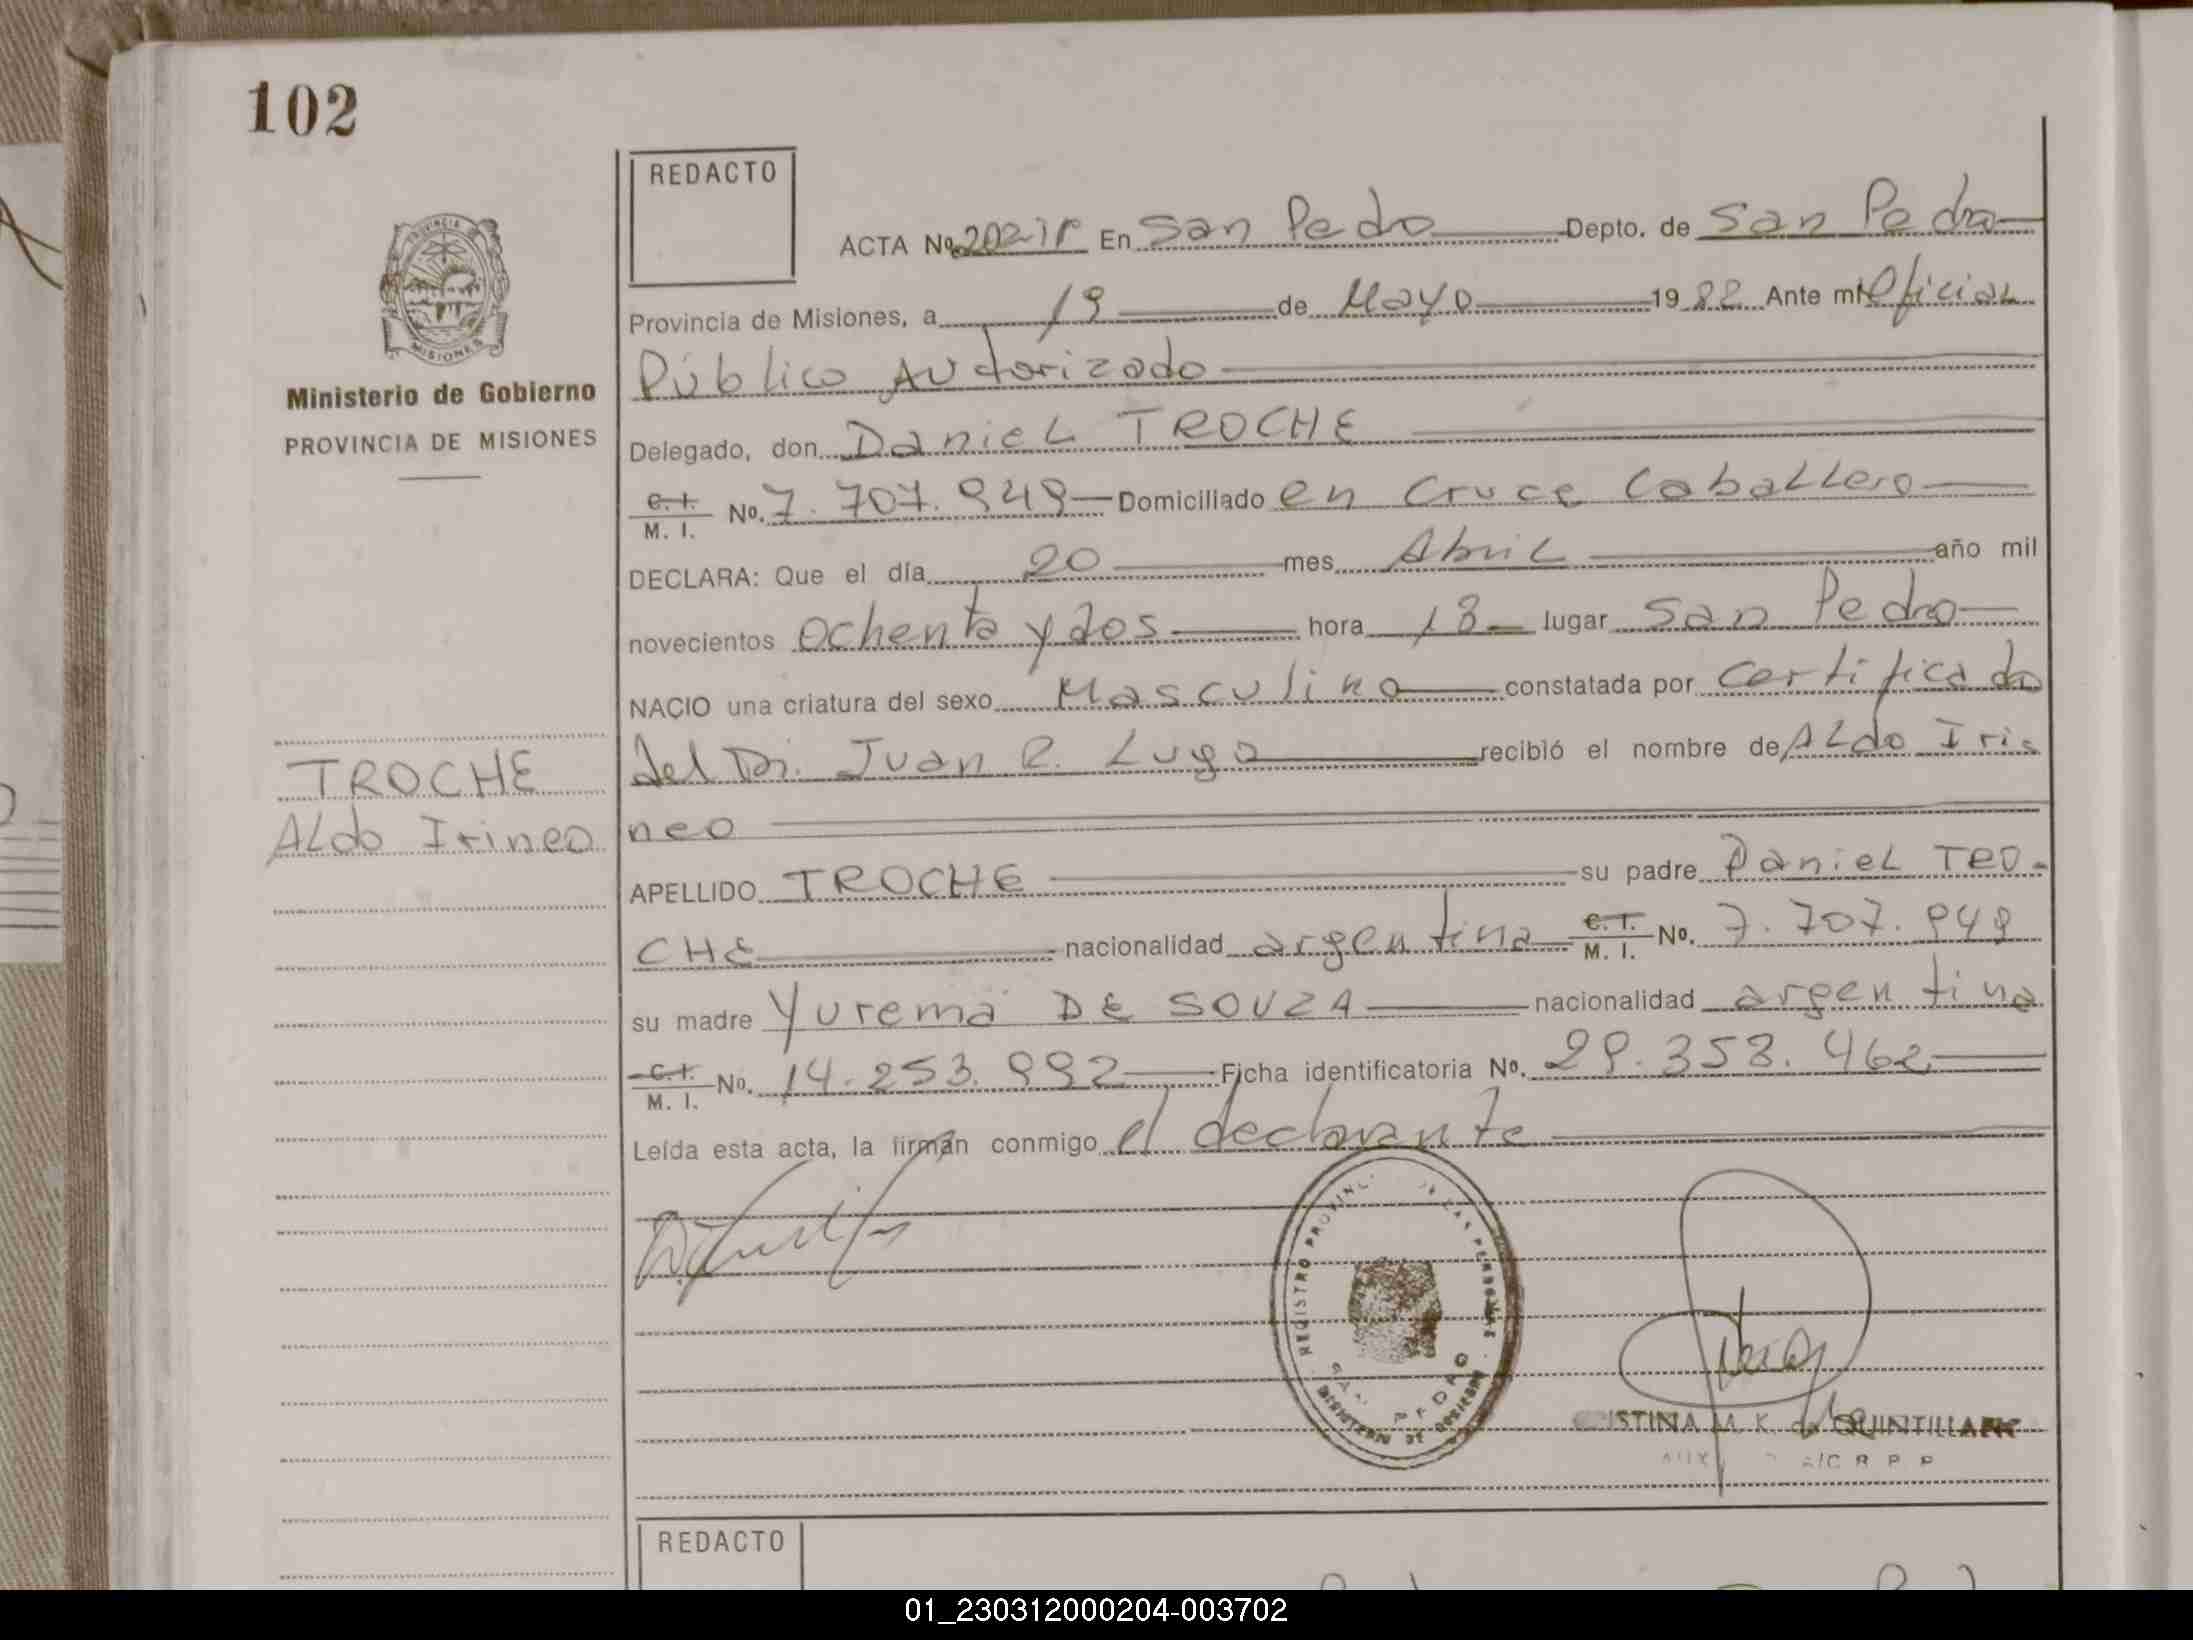 102
REDACTO
ACTA No. 202-Iº En San Pedro Depto. de San Pedro
Provincia de Misiones, a 19 de Mayo 1982 Ante mi Oficial
Público Autorizado
Ministerio de Gobierno
PROVINCIA DE MISIONES
Delegado, don Daniel TROCHE
C. I. M. I. No. 7.707.949 Domiciliado en Cruce Caballero
DECLARA: Que el día 20 mes Abril año mil
novecientos ochenta y dos hora 18 lugar San Pedro
NACIO una criatura del sexo Masculino constatada por certificado
del Dr. Juan R. Lugo recibió el nombre de Aldo Iri
neo
TROCHE
Aldo Irineo
APELLIDO TROCHE su padre Daniel TRO-
CHE nacionalidad argentina C. I. M. I. No. 7.707.949
su madre Yurema DE SOUZA nacionalidad argentina
C. I. M. I. No. 14.253.992 Ficha identificatoria No. 29.358.462
Leída esta acta, la firman conmigo el declarante
REGISTRO PROVINC DE LAS PERSONAS
SAN PEDRO
MINISTERIO DE GOBIERNO
CRISTINA M. K. de QUINTILLAN
AUX A/C R P P
REDACTO
01_230312000204-003702